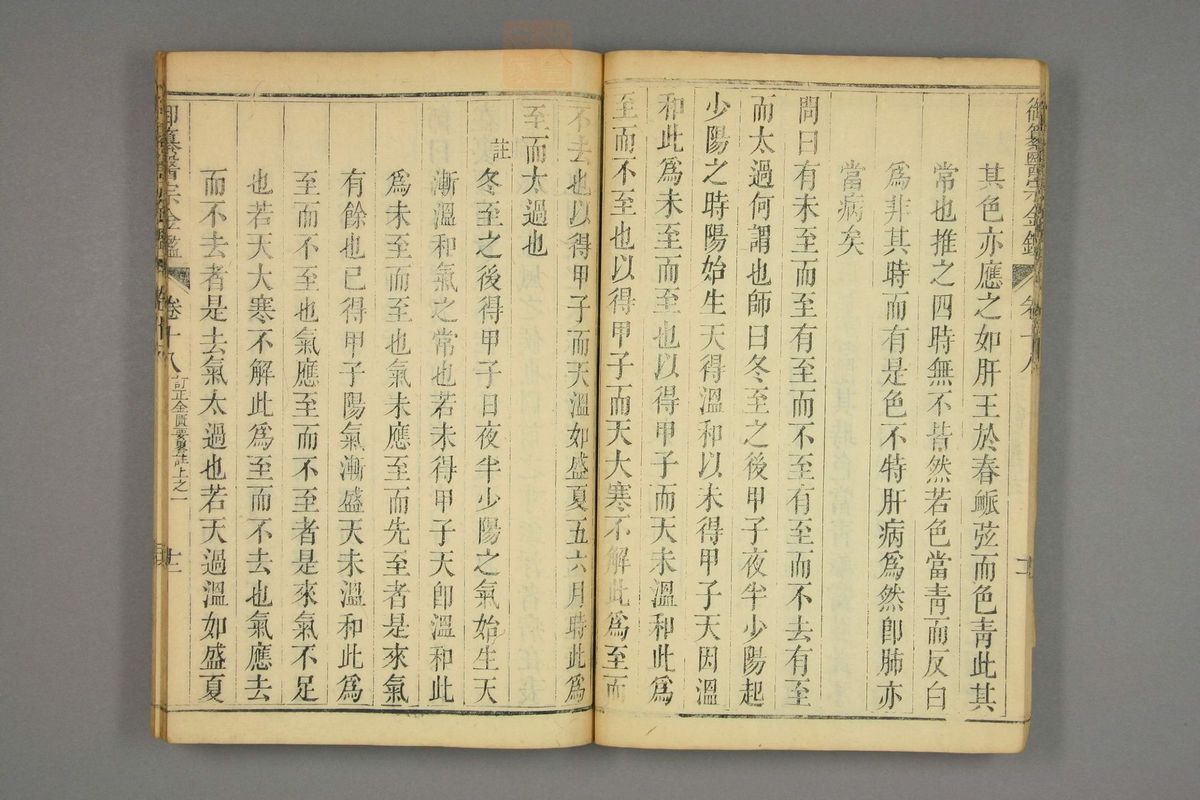 御纂醫宗金鑑
卷十八
其色亦應之如肝王於春脈弦而色青此其
常也推之四時無不皆然若色當青而反白
為非其時而有是色不特肝病為然卽肺亦
當病矣
問曰有未至而至有至而不至有至而不去有至
而太過何謂也師曰冬至之後甲子夜半少陽起
少陽之時陽始生天得溫和以未得甲子天因溫
和此為未至而至也以得甲子而天未溫和此為
至而不至也以得甲子而天大寒不解此為至而
不去也以得甲子而天溫如盛夏五六月時此為
至而太過也
註冬至之後得甲子日夜半少陽之氣始生天
漸溫和氣之常也若未得甲子天卽溫和此
為未至而至也氣未應至而先至者是來氣
有餘也已得甲子陽氣漸盛天未溫和此為
至而不至也氣應至而不至者是來氣不足
也若天大寒不解此為至而不去也氣應去
而不去者是去氣太過也若天過溫如盛夏
御纂醫宗金鑑
卷十八
訂正金匱要畧註上之一
十二